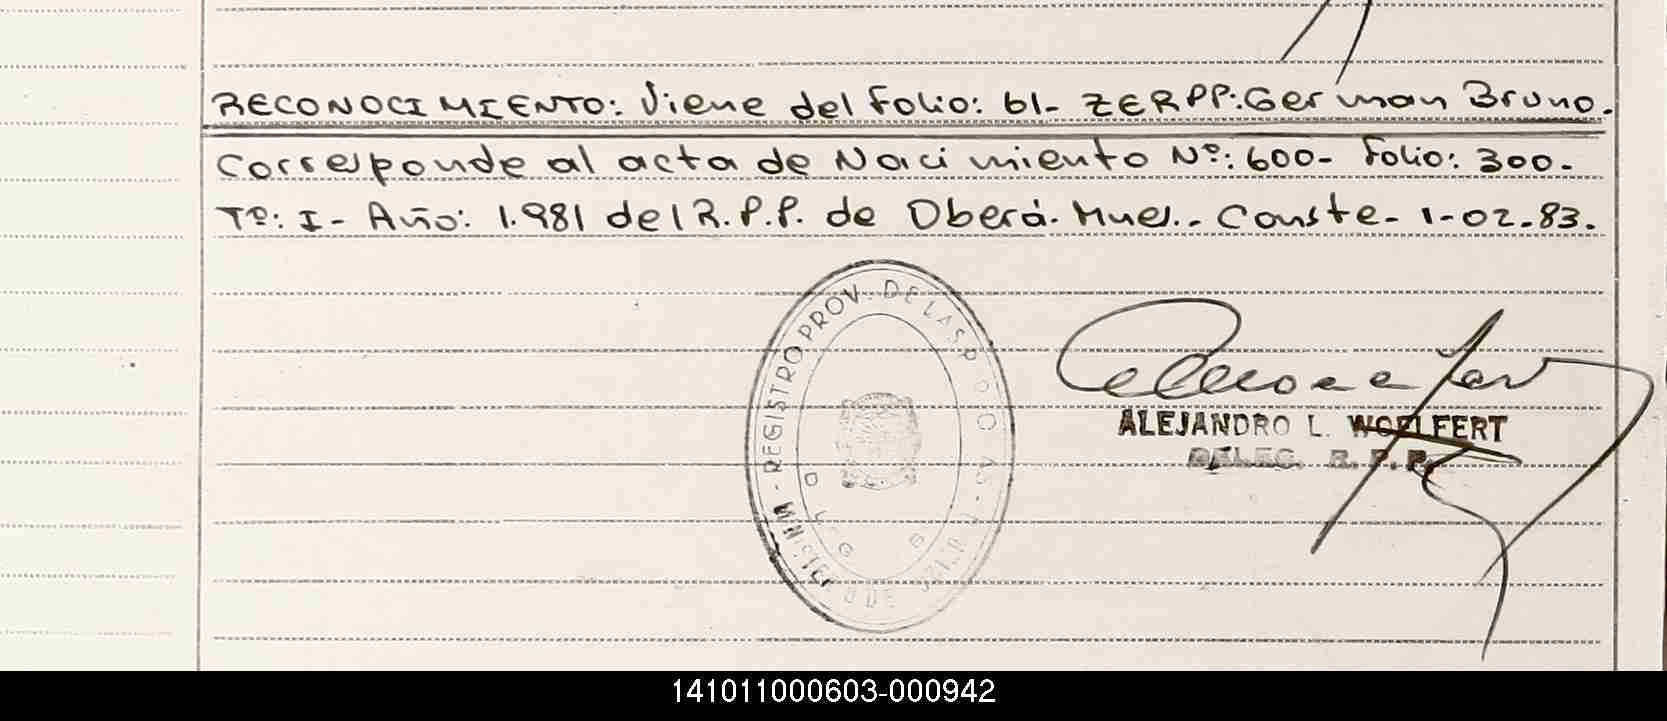 RECONOCIMIENTO: Viene del Folio: 61- ZERPP: German Bruno.
Corresponde al acta de Nacimiento Nº: 600- Folio: 300-
Tº: I- Año: 1.981 del R.P.P. de Oberá. Mnes.- Conste- 1-02-83.
REGISTRO PROV. DE LAS P
ALEJANDRO L. WOELFERT
DELEG. R. P. P.
141011000603-000942